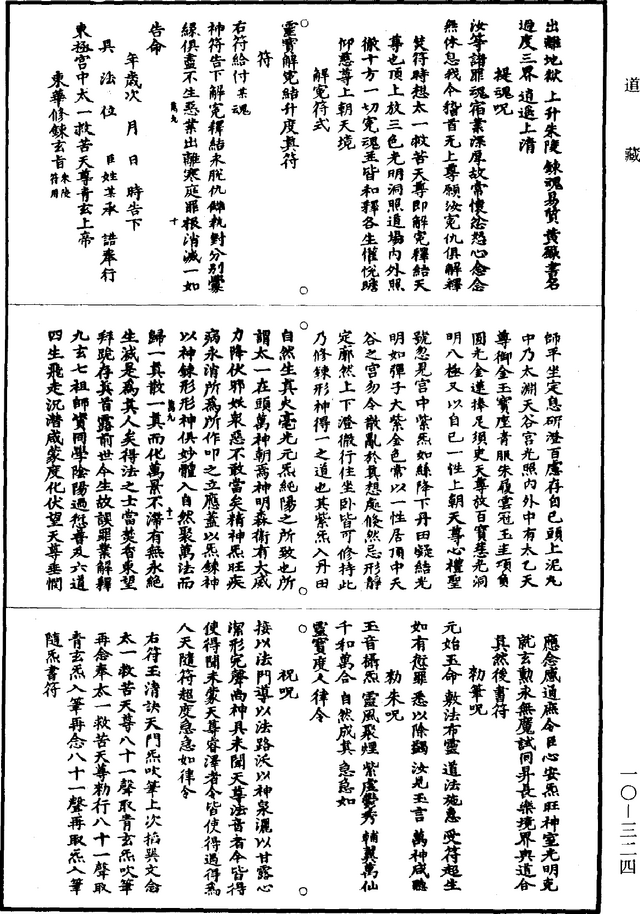 道藏
出離地獄上升朱陵鍊魂易質黃籙書名
過度三界逍遙上清
提魂咒
汝等諸罪魂宿業深厚故常懷忿怒心念念
無休息我今稽首無上尊願汝冤仇俱解釋
焚符時想太一救苦天尊即解冤釋結天
尊也頂上放三色光明洞照道場內外照
徹十方一切冤魂並皆和釋各生懽悅瞻
仰慈尊上朝天境
解冤符式
靈寶解冤結升度真符
符
右符給付某魂
神符告下解冤釋結永脫仇讎執對分別釁
緣俱盡不生惡業出離寒庭罪根消滅一如
告命
年歲次月日時告下
具法位臣姓某承誥奉行
東極宮中太一救苦天尊青玄上帝
東華修鍊玄旨朱陵符用
師平坐定息研澄百慮存自己頭上泥丸
中乃太淵天谷宮光照內外中有太乙天
尊御金玉寶座青服朱履雲冠玉圭項負
圓光金蓮捧足須臾天尊放百寶慈光洞
明八極又以自己一性上朝天尊心禮聖
號忽見宮中紫炁如絲降下丹田凝結光
明如彈子大紫金色常以一性居頂中天
谷之宮勿令散亂於其想處倏然忘形靜
定廓然上下澄徹行住坐臥皆可修持此
乃修鍊形神得一之道也其紫炁入丹田
自然生真火毫光元炁純陽之所致也所
謂太一在頭萬神朝焉神明森衛有大威
力降伏邪妖眾惡不敢當矣精神炁旺疾
病永消所為所作叩之立應蓋以炁鍊神
以神鍊形形神俱妙體入自然聚萬法而
歸一真散一真而化萬景不滯有無永絕
生滅是為真人矣得法之士當焚香東望
拜跪存真首露前世今生故誤罪業解釋
九玄七祖師資同學陰陽過愆普及六道
四生飛走沉潛咸蒙度化伏望天尊垂憫
應念感通庶令臣心安炁旺神室光明克
就玄勳永無魔試同昇長樂境界與道合
真然後書符
勑筆咒
元始玉命敷法布靈道法施惠受符超生
如有愆罪悉以除蠲汝見玉言萬神咸聽
勑朱咒
玉音攝炁靈風聚煙紫虛鬱秀輔翼萬仙
千和萬合自然成真急急如
靈寶度人律令
祝咒
接以法門導以法路沃以神泉灑以甘露心
潔形完聲尚神具未聞天尊法音者令皆得
使得聞未蒙天尊睿澤者令皆使得過得為
人天隨符超度急急如律令
右符玉清訣天門炁吹筆上次掐巽文念
太一救苦天尊八十一聲取青玄炁吹筆
再念奉太一救苦天尊勑行八十一聲取
青玄炁入筆再念八十一聲再取炁入筆
隨炁書符
一〇—三二四